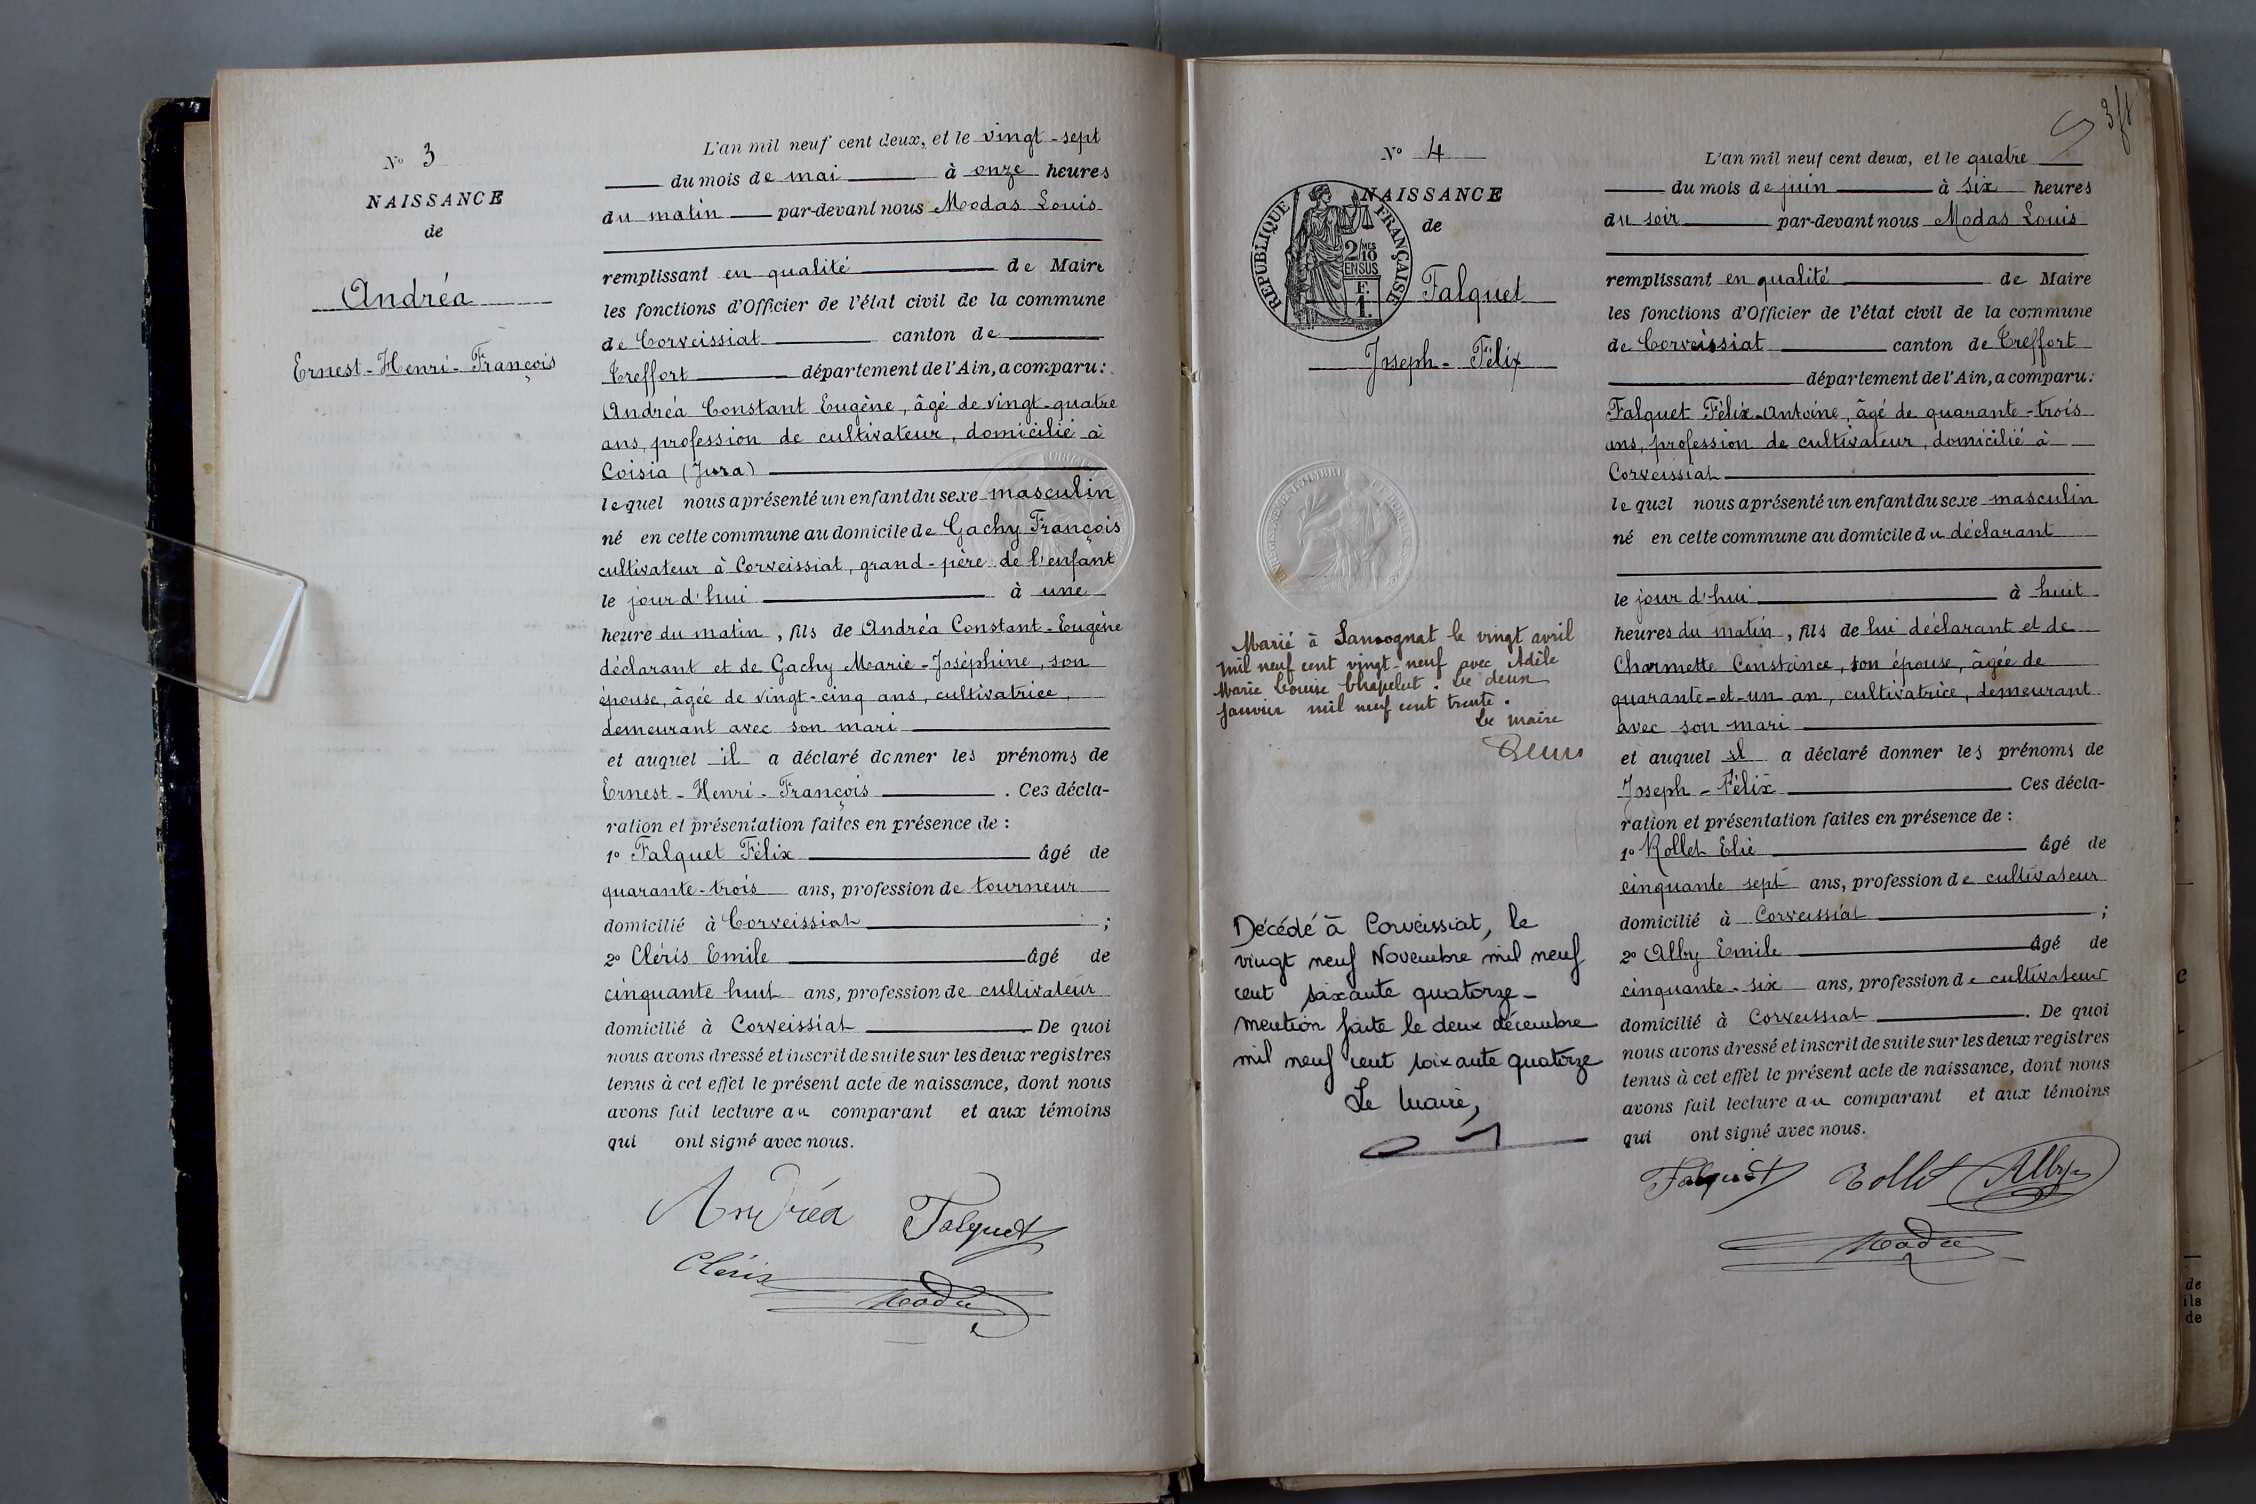 N° 3
NAISSANCE
de
Andréa
Ernest-Henri-François
L'an mil neuf cent deux, et le vingt-sept
du mois de mai à onze heures
du matin par-devant nous Modas Louis
remplissant en qualité de Maire
les fonctions d'Officier de l'état civil de la commune
de Corveissiat canton de
Treffort département de l'Ain, a comparu:
Andréa Constant Eugène, âgé de vingt-quatre
ans, profession de cultivateur, domicilié à
Coisia (Jura)
lequel nous a présenté un enfant du sexe masculin
né en cette commune au domicile de Gachy François
cultivateur à Corveissiat, grand-père de l'enfant
le jour d'hui à une
heure du matin, fils de Andréa Constant-Eugène
déclarant et de Gachy Marie-Joséphine, son
épouse, âgée de vingt-cinq ans, cultivatrice,
demeurant avec son mari
et auquel il a déclaré donner les prénoms de
Ernest-Henri-François. Ces décla-
ration et présentation faites en présence de :
1° Falquet Félix âgé de
quarante-trois ans, profession de tourneur
domicilié à Corveissiat ;
2° Cléris Emile âgé de
cinquante huit ans, profession de cultivateur
domicilié à Corveissiat De quoi
nous avons dressé et inscrit de suite sur les deux registres
tenus à cet effet le présent acte de naissance, dont nous
avons fait lecture au comparant et aux témoins
qui ont signé avec nous.
Andréa Falquet
Cléris
3
N° 4
NAISSANCE
de
RÉPUBLIQUE FRANÇAISE
2/10
EN SUS
F.
1.
Falquet
Joseph-Félix
Marié à Sansognat le vingt avril
mil neuf cent vingt-neuf avec Adèle
Marie Louise Chapelut. Le deux
janvier mil neuf cent trente.
Le maire
Décédé à Corveissiat, le
vingt neuf Novembre mil neuf
cent soixante quatorze-
mention faite le deux décembre
mil neuf cent soixante quatorze
Le Maire,
L'an mil neuf cent deux, et le quatre
du mois de juin à six heures
du soir par-devant nous Modas Louis
remplissant en qualité de Maire
les fonctions d'Officier de l'état civil de la commune
de Corveissiat canton de Treffort
département de l'Ain, a comparu:
Falquet Félix-Antoine, âgé de quarante-trois
ans, profession de cultivateur, domicilié à
Corveissiat
lequel nous a présenté un enfant du sexe masculin
né en cette commune au domicile du déclarant
le jour d'hui à huit
heures du matin, fils de lui déclarant et de
Charmette Constance, son épouse, âgée de
quarante-et-un an, cultivatrice, demeurant
avec son mari
et auquel il a déclaré donner les prénoms de
Joseph-Félix Ces décla-
ration et présentation faites en présence de :
1° Rollet Elie âgé de
cinquante sept ans, profession de cultivateur
domicilié à Corveissiat ;
2° Alby Emile âgé de
cinquante-six ans, profession de cultivateur
domicilié à Corveissiat. De quoi
nous avons dressé et inscrit de suite sur les deux registres
tenus à cet effet le présent acte de naissance, dont nous
avons fait lecture au comparant et aux témoins
qui ont signé avec nous.
Falquet Rollet Alby
de
ils
de